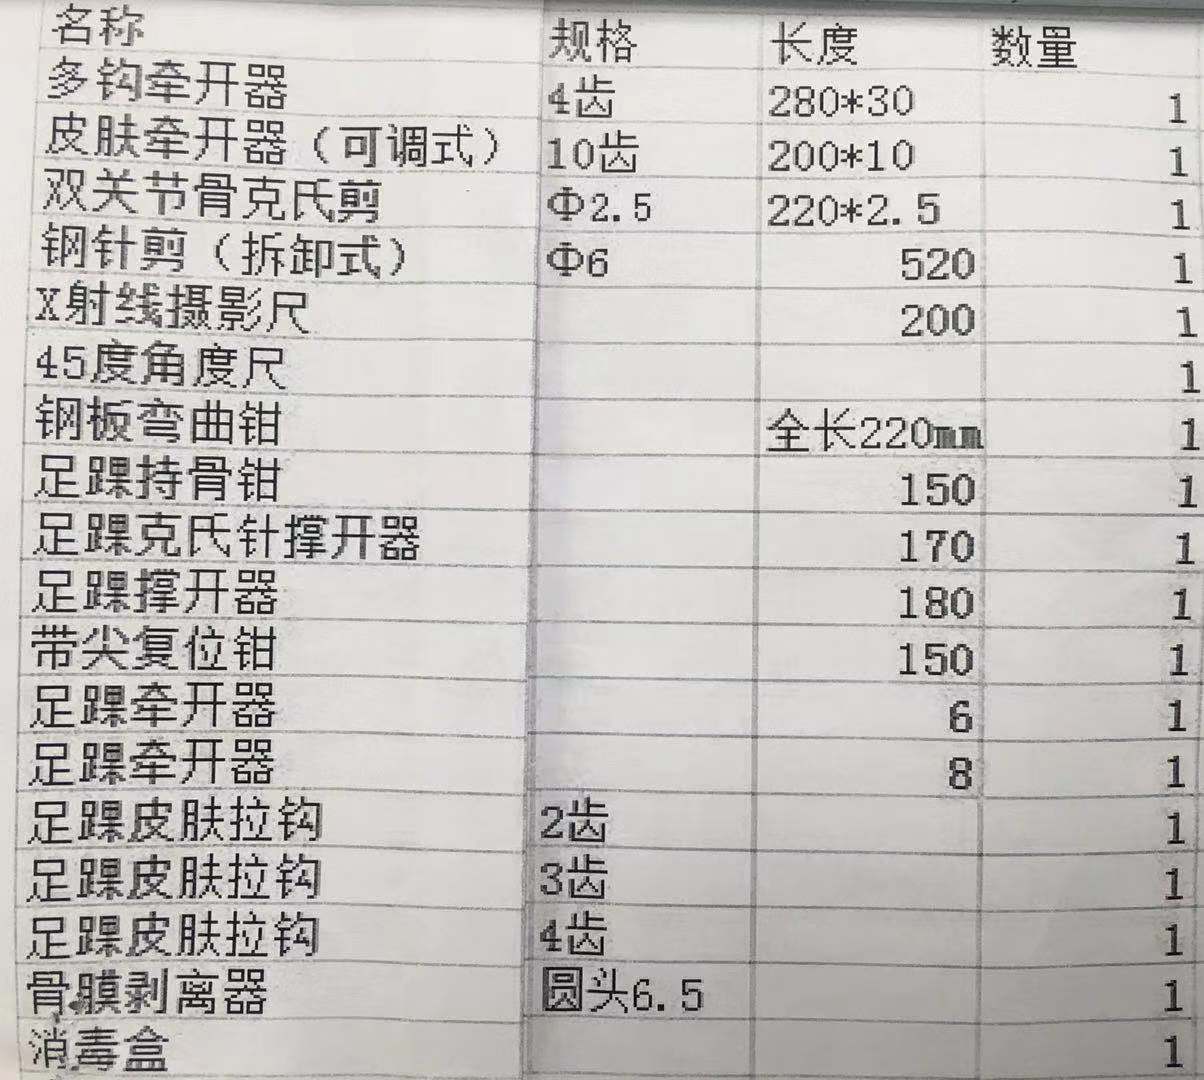 名称 规格 长度 数量
多钩牵开器 4齿 280*30 1
皮肤牵开器（可调式） 10齿 200*10 1
双关节骨克氏剪 Φ2.5 220*2.5 1
钢针剪（拆卸式） Φ6 520 1
X射线摄影尺 200 1
45度角度尺 1
钢板弯曲钳 全长220mm 1
足踝持骨钳 150 1
足踝克氏针撑开器 170 1
足踝撑开器 180 1
带尖复位钳 150 1
足踝牵开器 6 1
足踝牵开器 8 1
足踝皮肤拉钩 2齿 1
足踝皮肤拉钩 3齿 1
足踝皮肤拉钩 4齿 1
骨膜剥离器 圆头6.5 1
消毒盒 1